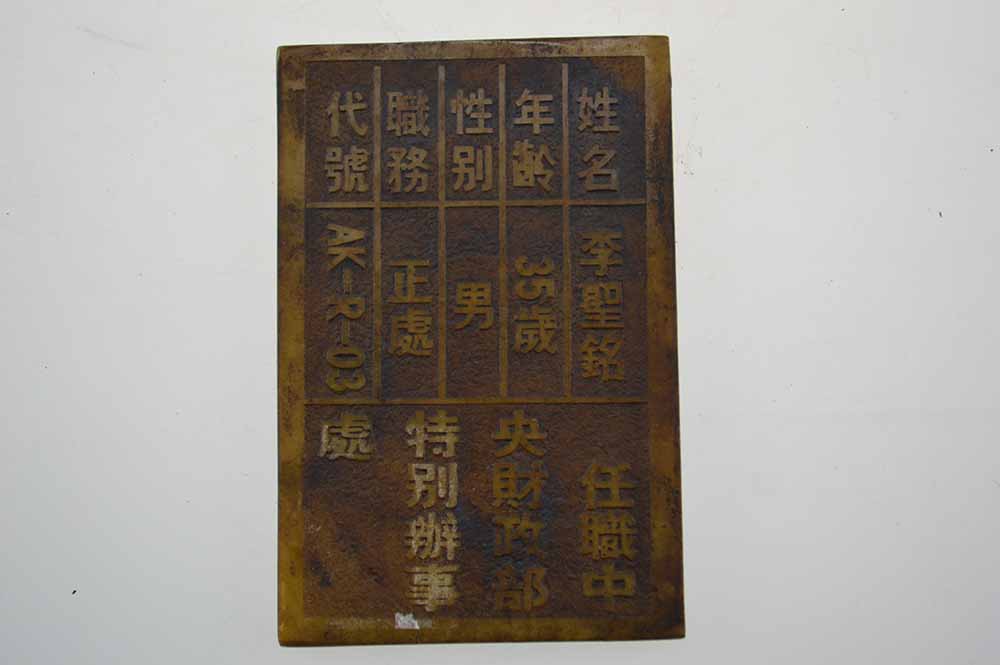 姓名 李聖銘
年齡 35歲
性別 男
職務 正處
代號 AK-R-03
任職中
央財政部
特別辦事
處